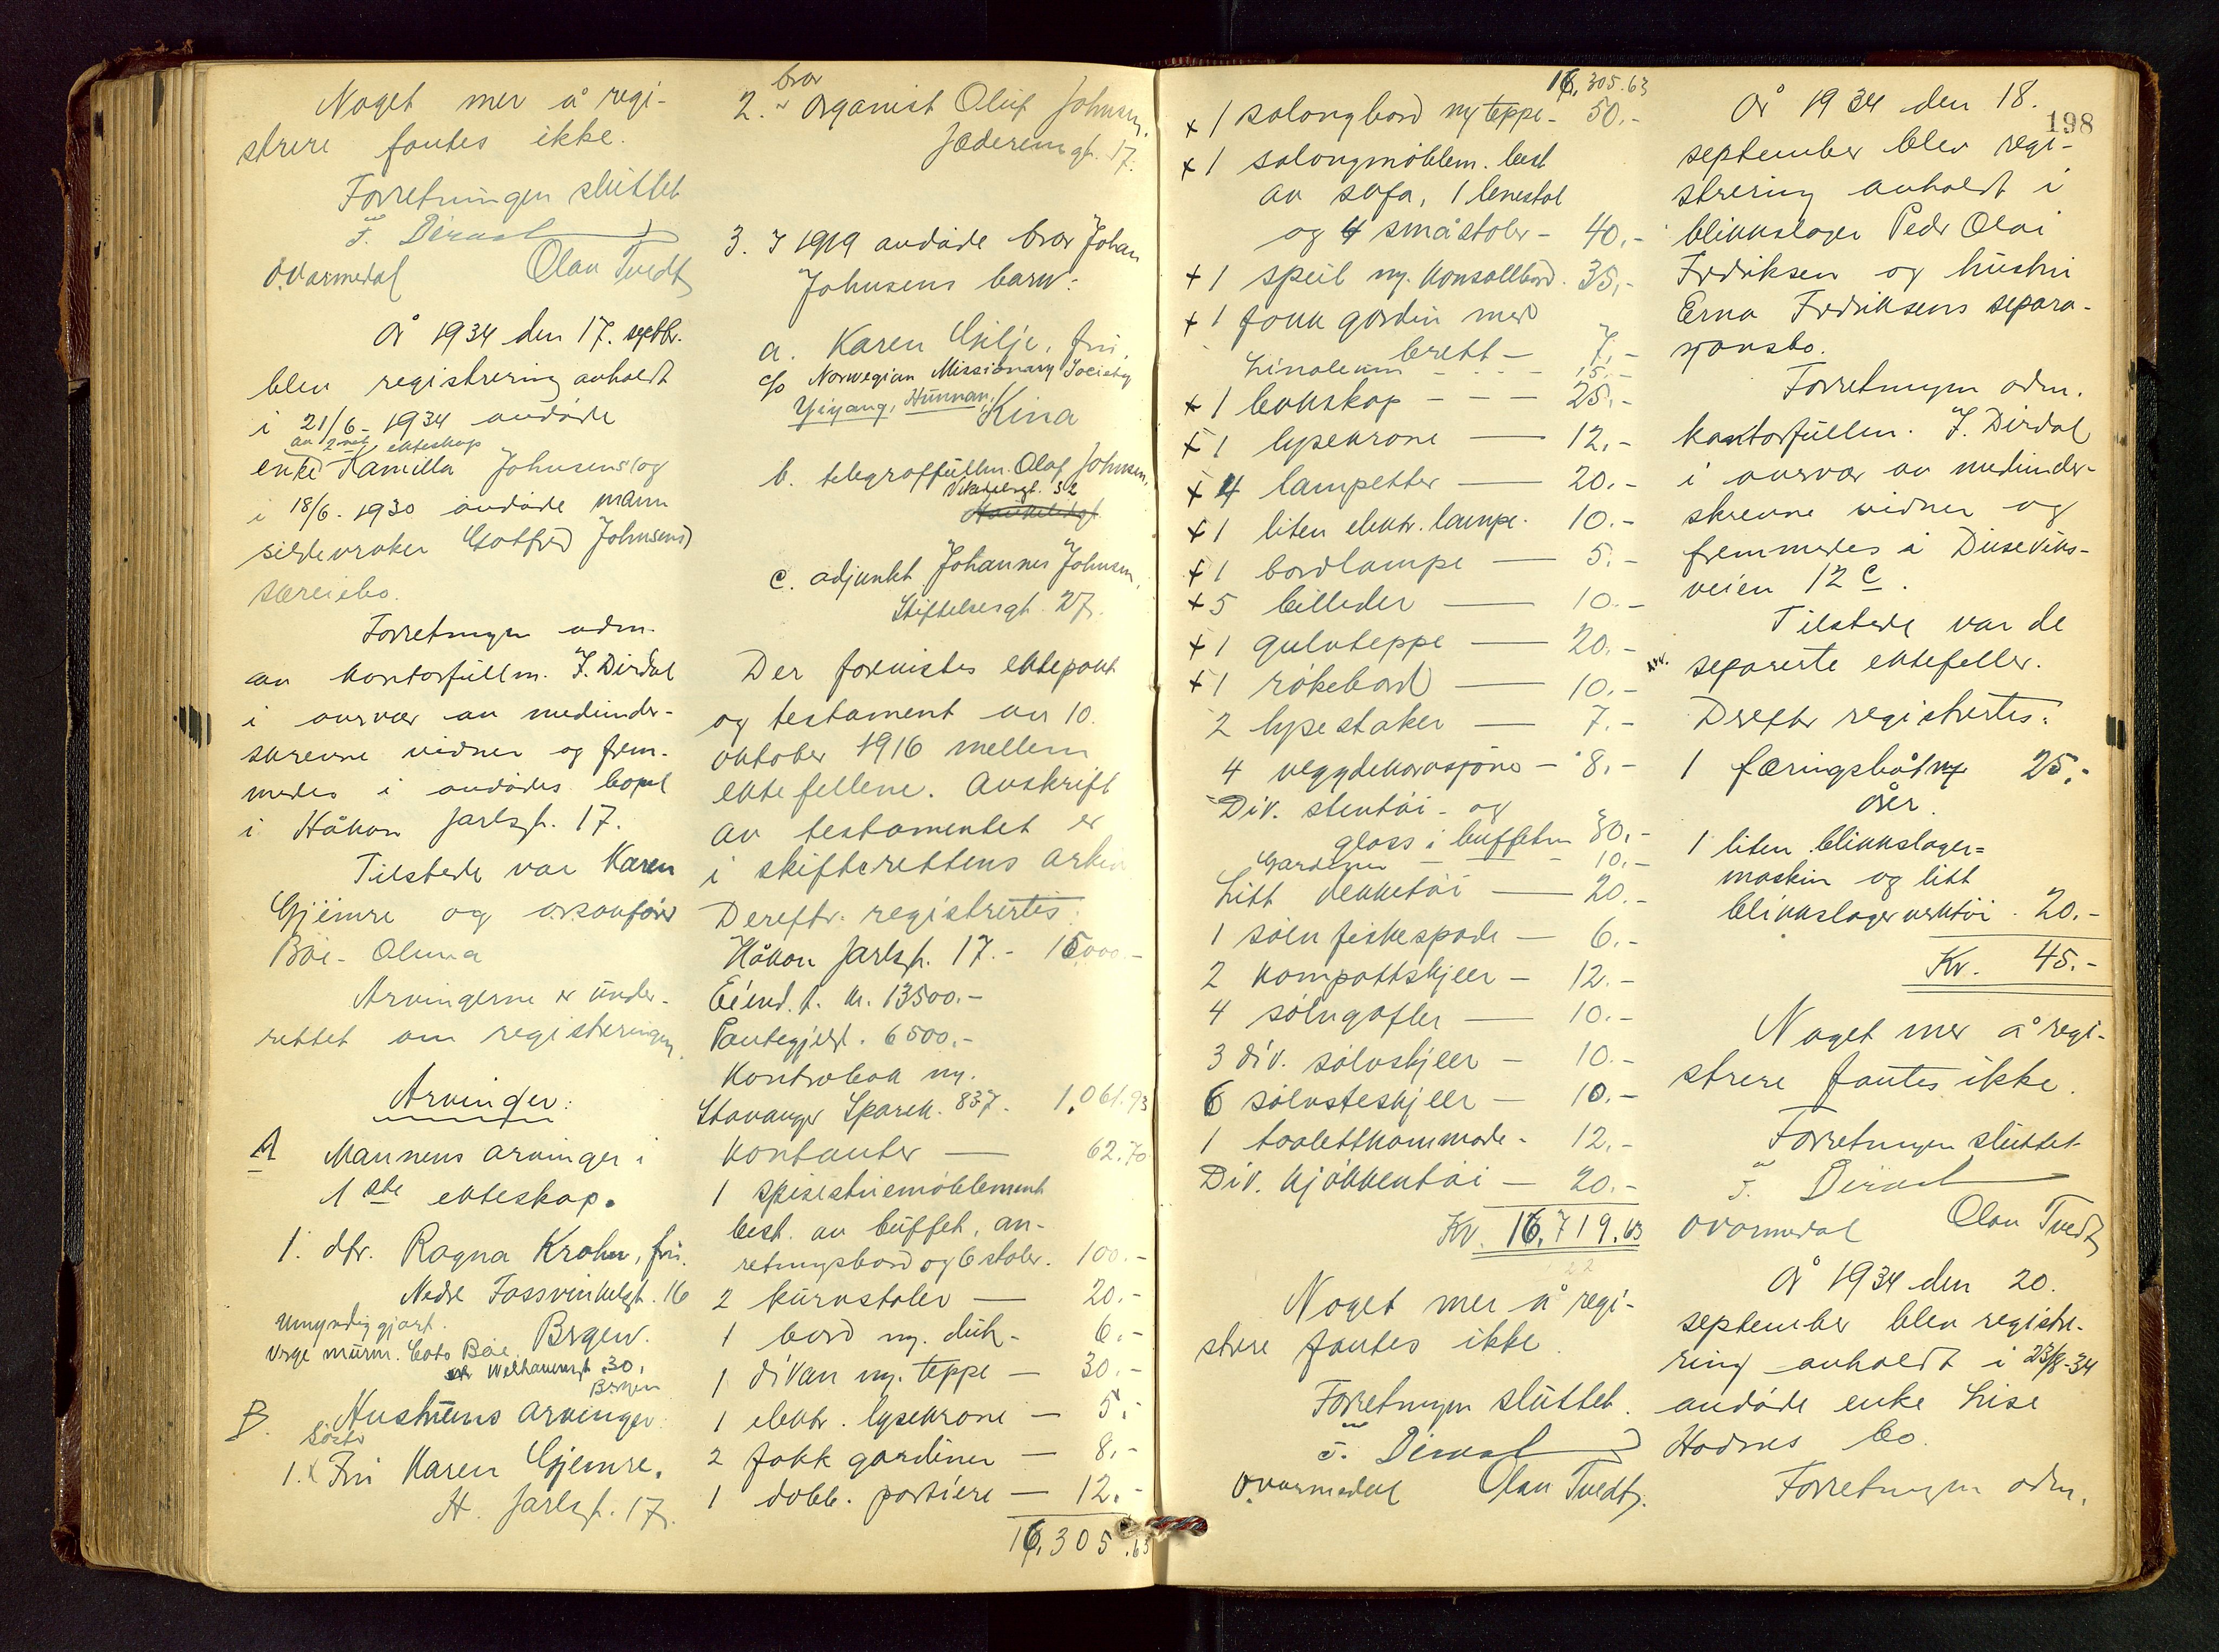 Noget mer å regi-
strere fantes ikke.
Forretningen sluttet
J. Dirdal
O. Varmedal Olav Tvedt
År 1934 den 17. septbr.
blev registrering avholdt
i 21/6-1934 avdøde
av 2net ekteskap
enke Kamilla Johnsens (og
i 18/6-1930 avdøde mann
sildevraker Gotfred Johnsens)
særeiebo.
Forretningen adm.
av kontorfullm. J. Dirdal
i overvær av medunder-
skrevne vidner og frem-
medes i avdødes bopel
i Håkon Jarlsgt. 17.
Tilstede var Karen
Gjemre og
Bøe-Oluna
Arvingerne er under-
rettet om registreringen.
Arvinger:
A Mannens arvinger i
1ste ekteskap.
1. dtr. Ragna Krohn, fru.
Nedre Fossvinkelgt. 16
Bergen.
Umyndiggjort.
Verge murm. Bøe.
Welhavensgt. 30,
Bergen
B. Hustruens arvinger:
søster
1. x Fru Karen Gjemre.
H. Jarlsgt. 17.
bror
2. Organist Oluf Johnsen,
Jæderengt. 17.
3. I 1919 avdøde bror Johan
Johnsens barn:
a. Karen Gilje, fru,
c/o Norwegian Missionary Society
Yiyang, Hunnan,
Kina
b. telegraffullm. Olaf Johnsen,
Vikedalsgt. 32
c. adjunkt Johannes Johnsen,
Stiftelsesgt. 27.
Der forevistes ektepakt
og testament av 10.
oktober 1916 mellem
ektefellene. Avskrift
av testamentet er
i skifterettens arkiv
Derefter registrertes:
Håkon Jarlsgt. 17. - 15000.-
Eiend. t. kr. 13500.-
Pantegjeld. 6500.-
Kontrabok nr.
Stavanger Sparek. 837. 1,061.93
Kontanter — 62.70
1 spisestuemøblement
best. av buffet, an-
retningsbord og 6 stoler. 100.-
2 kurvstoler — 20.-
1 bord m. duk - 6.-
1 divan m. teppe — 30.-
1 elektr. lysekrone — 5.-
2 fakk gardiner — 8.-
1 dobb. portiere — 12.-
16,305.63
16,305.63
x 1 salongbord m/ teppe - 50.-
x 1 salongmøblem. best
av sofa, 1 lenestol
og 4 småstoler - 40.-
x 1 speil m. konsollbord. 35.-
x 1 fakk gardin med
brett — 7.-
Linoleum - - - 15.-
x 1 bokskap - - - 25.-
x 1 lysekrone — 12.-
x 4 lampetter — 20.-
x 1 liten elektr. lampe. 10.-
x 1 bordlampe — 5.-
x 5 billeder — 10.-
x 1 gulvteppe — 20.-
x 1 røkebord — 10.-
2 lysestaker — 7.-
4 veggdekorasjoner — 8.-
Div. stentøi- og
glass i buffeten 30.-
Gardiner — 10.-
Litt dekketøi — 20.-
1 sølv fiskespade — 6.-
2 kompottskjeer — 12.-
4 sølvgafler — 10.-
3 div. sølvskjeer — 10.-
6 sølvteskjeer — 10.-
1 toalettkommode - 12.-
Div. kjøkkentøi — 20.-
Kr. 16,719.63
Noget mer å regi-
strere fantes ikke.
Forretningen sluttet.
J. Dirdal
O. Varmedal Olav Tvedt.
198
År 1934 den 18.
september blev regi-
strering avholdt i
blikkslager Peder Olai
Fredriksen og hustru
Erna Fredriksens separa-
sjonsbo.
Forretningen adm.
kontorfullm. J. Dirdal
i overvær av medunder-
skrevne vidner og
fremmedes i Duseviks-
veien 12 c.
Tilstede var de
separerte ektefeller.
Derefter registrertes:
1 færingsbåt m/ 25.-
årer.
1 liten blikkslager-
maskin og litt
blikkslagerverktøi. 20.-
Kr. 45.-
Noget mer å regi-
strere fantes ikke.
Forretningen sluttet
J. Dirdal
O. Varmedal Olav Tvedt
År 1934 den 20.
september blev registre-
ring avholdt i 23/8-34
avdøde enke Lise
Hodnes bo.
Forretningen adm.